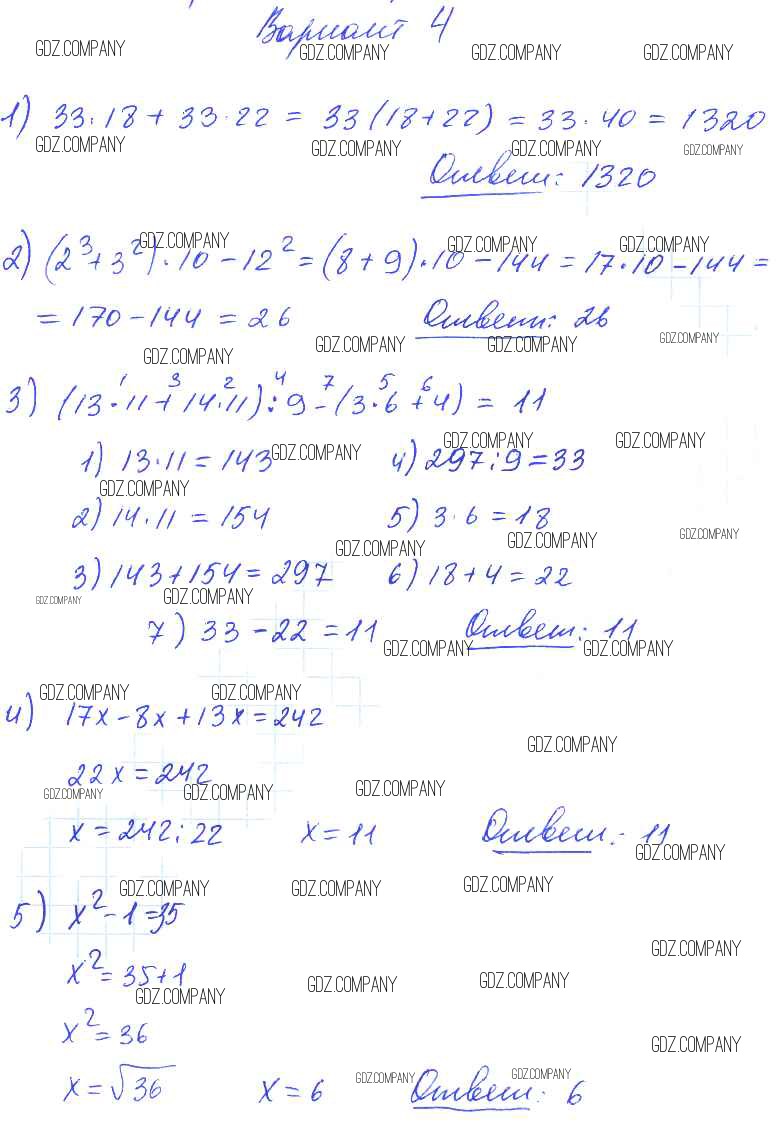 Вариант 4
GDZ.COMPANY GDZ.COMPANY GDZ.COMPANY GDZ.COMPANY
1) 33·18 + 33·22 = 33(18+22) = 33·40 = 1320
GDZ.COMPANY GDZ.COMPANY GDZ.COMPANY GDZ.COMPANY
Ответ: 1320
GDZ.COMPANY GDZ.COMPANY GDZ.COMPANY
2) (2³+3²)·10 - 12² = (8+9)·10 - 144 = 17·10 - 144 =
= 170 - 144 = 26 Ответ: 26
GDZ.COMPANY GDZ.COMPANY GDZ.COMPANY GDZ.COMPANY
1 3 2 4 7 5 6
3) (13·11 + 14·11) : 9 - (3·6 + 4) = 11
GDZ.COMPANY GDZ.COMPANY GDZ.COMPANY
1) 13·11 = 143 4) 297:9 = 33
GDZ.COMPANY
2) 14·11 = 154 5) 3·6 = 18
GDZ.COMPANY GDZ.COMPANY GDZ.COMPANY
3) 143+154 = 297 6) 18+4 = 22
GDZ.COMPANY GDZ.COMPANY
7) 33 - 22 = 11 Ответ: 11
GDZ.COMPANY GDZ.COMPANY
GDZ.COMPANY GDZ.COMPANY
4) 17x - 8x + 13x = 242
GDZ.COMPANY
22x = 242
GDZ.COMPANY GDZ.COMPANY GDZ.COMPANY
x = 242:22 x = 11 Ответ: 11
GDZ.COMPANY
GDZ.COMPANY GDZ.COMPANY GDZ.COMPANY
5) x² - 1 = 35
GDZ.COMPANY
x² = 35+1
GDZ.COMPANY GDZ.COMPANY GDZ.COMPANY
x² = 36
GDZ.COMPANY
x = √36 x = 6 Ответ: 6
GDZ.COMPANY GDZ.COMPANY